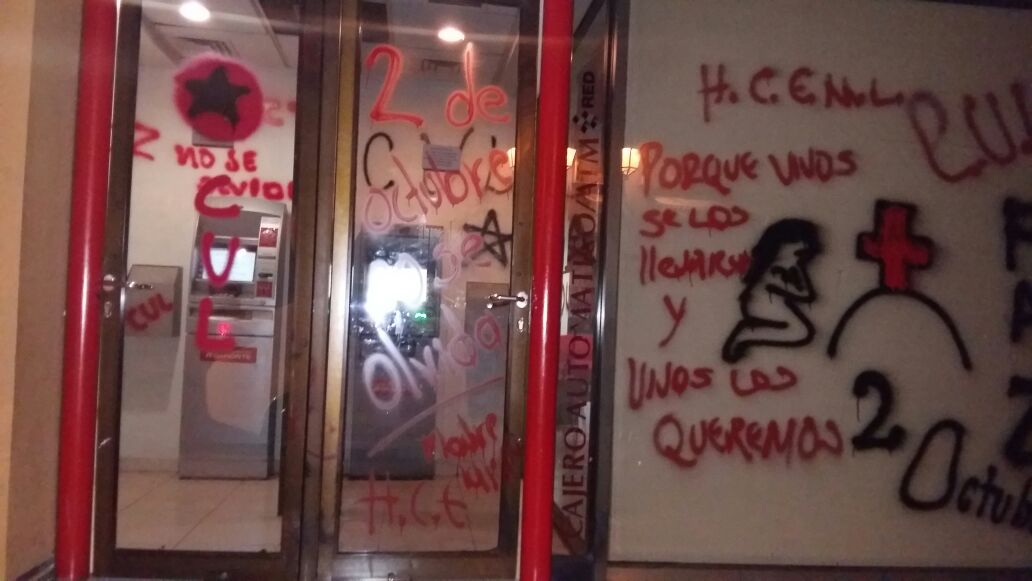 NO SE
CUL
CUL
2 de
octubre
no se
olvida
H.C.E
CAJERO AUTOMATICO/ATM RED
H. C. E. N. L.
CUL
PORQUE VIVOS
SE LOS
llevaron
y
VIVOS LOS
QUEREMOS
2
Octub